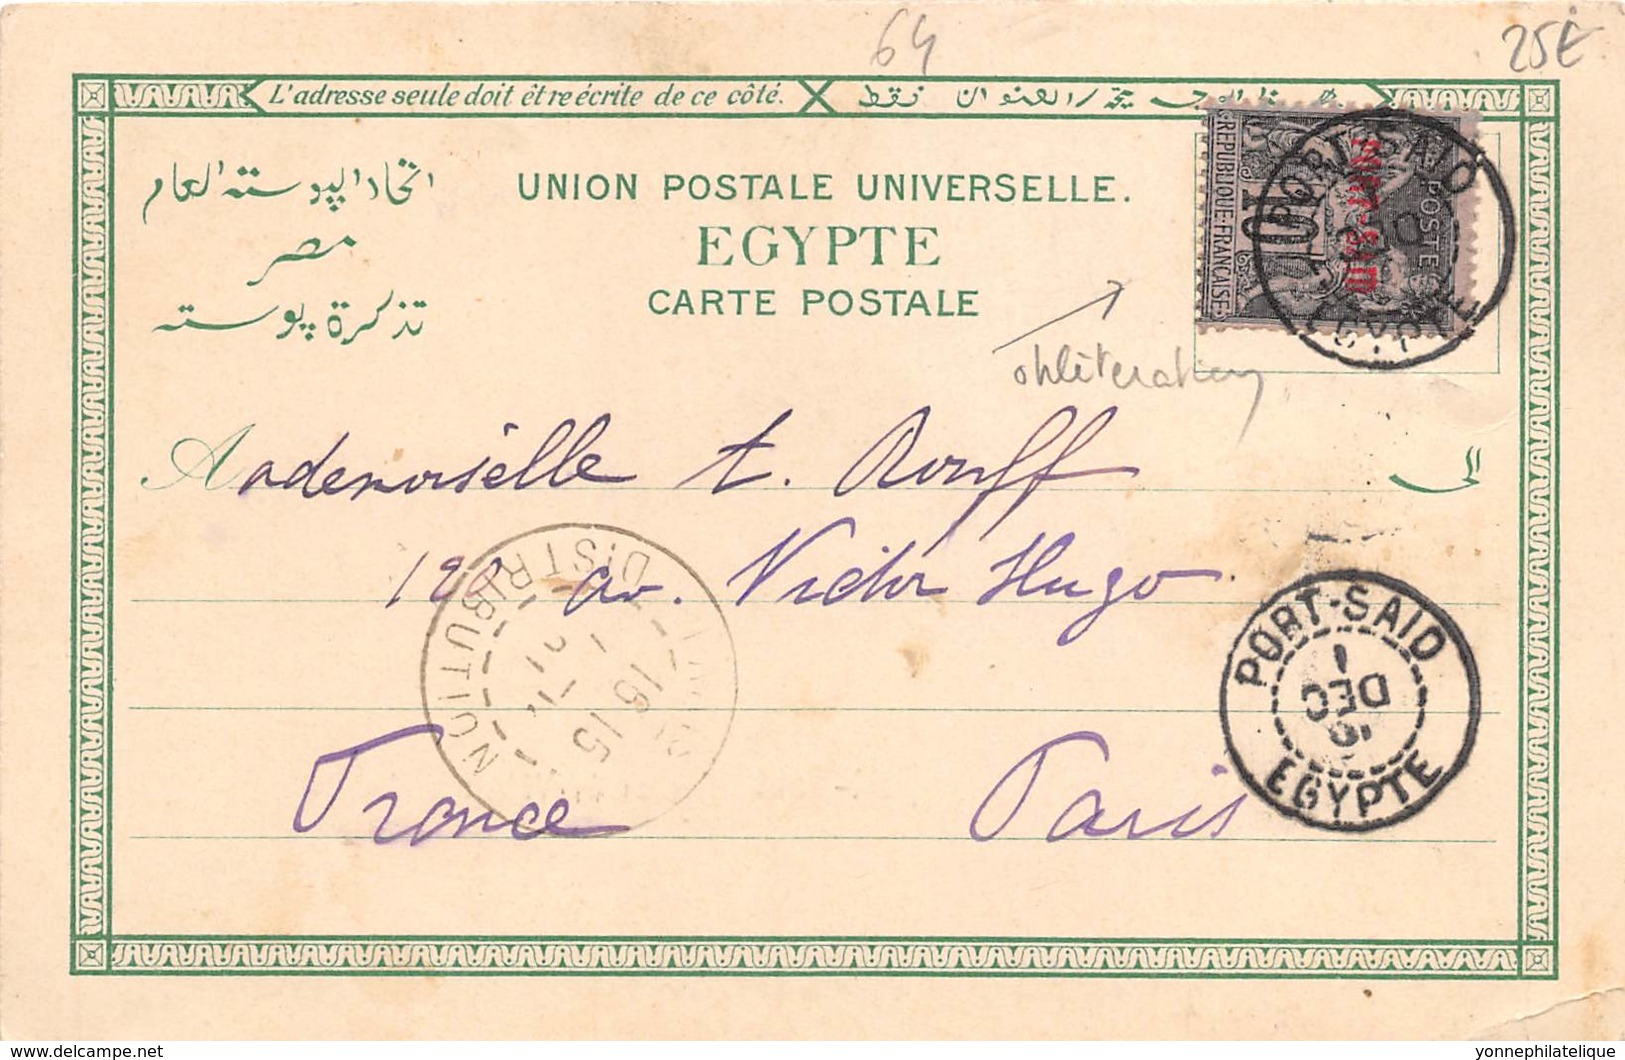 64
25€
L'adresse seule doit être écrite de ce côté.
اتحاد البوستة العام
UNION POSTALE UNIVERSELLE.
مصر
EGYPTE
تذكرة بوستة
CARTE POSTALE
REPUBLIQUE FRANÇAISE
10
PORT-SAID
POSTE
PORT-SAID
EGYPTE
obliteration
Mademoiselle t. Rouff
الى
120 av. Victor Hugo
France Paris
DISTRIBUTION
PARIS
16 15
PORT-SAID
1
DEC
EGYPTE
yonnephilatelie
delcampe.net